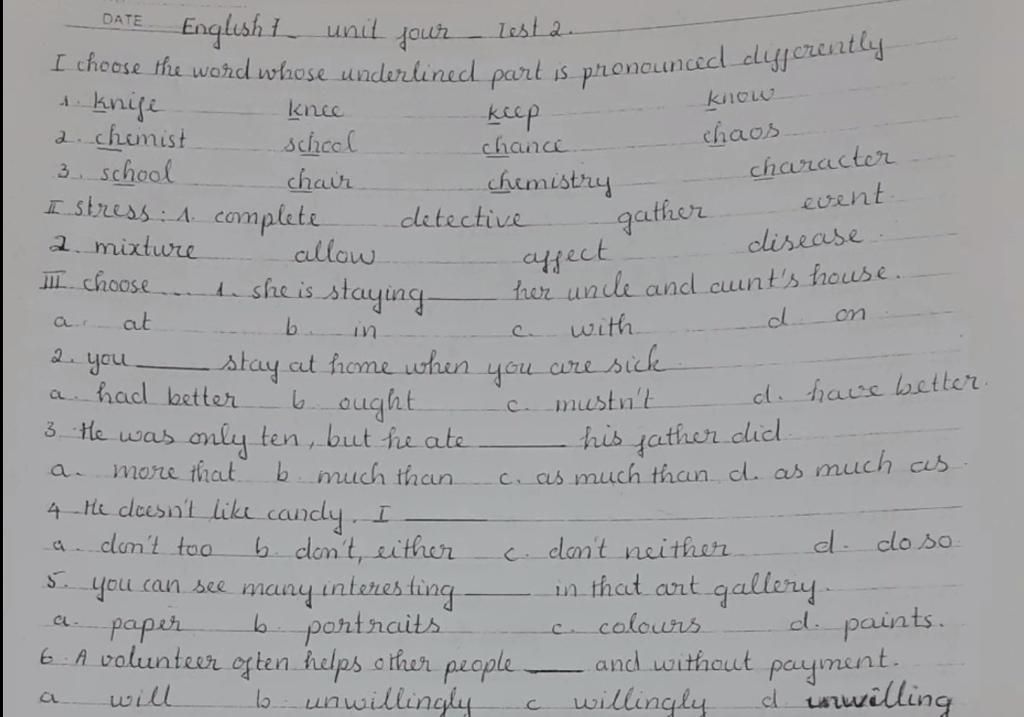 DATE English 7 _ unit four _ Test 2.
I choose the word whose underlined part is pronounced differently
1. knife knee keep know
2. chemist school chance chaos
3. school chair chemistry character
II stress: 1. complete detective gather event
2. mixture allow affect disease
III choose ... 1. she is staying ____ her uncle and aunt's house.
a. at b. in c. with d. on
2. you ____ stay at home when you are sick
a. had better b. ought c. mustn't d. have better.
3. He was only ten, but he ate ____ his father did
a. more that b. much than c. as much than d. as much as
4 He doesn't like candy. I ____
a. don't too b. don't, either c. don't neither d. do so
5. you can see many interesting ____ in that art gallery.
a. paper b. portraits c. colours d. paints.
6. A volunteer often helps other people ____ and without payment.
a will b. unwillingly c willingly d. unwilling